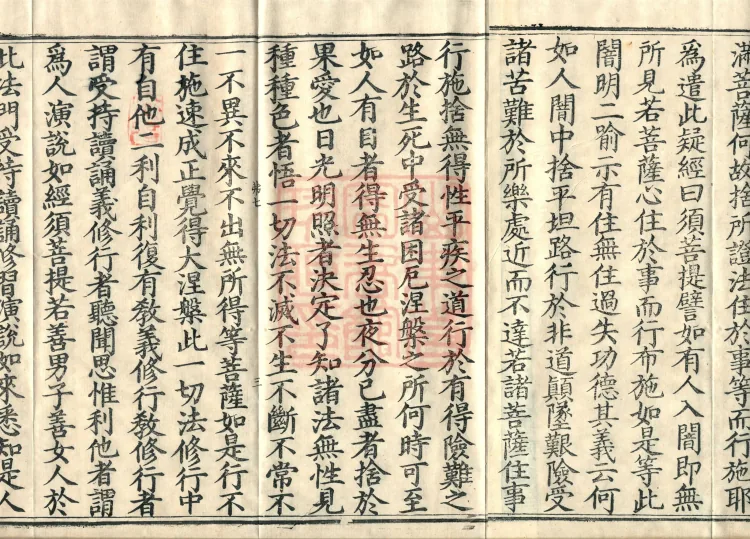 滿菩薩何故捨所證法住於事等而行施耶
爲遣此疑經曰須菩提譬如有人入闇即無
所見若菩薩心住於事而行布施如是等此
闇明二喻示有住無住過失功德其義云何
如人闇中捨平坦路行於非道顛墜艱險受
諸苦難於所樂處近而不達若諸菩薩住事
行施捨無得性平疾之道行於有得險難之
路於生死中受諸困厄涅槃之所何時可至
如人有目者得無生忍也夜分已盡者捨於
果愛也日光明照者決定了知諸法無性見
種種色者悟一切法不滅不生不斷不常不
一不異不來不出無所得等菩薩如是行不
住施速成正覺得大涅槃此一切法修行中
有自他二利自利復有教義修行教修行者
謂受持讀誦義修行者聽聞思惟利他者謂
爲人演説如經須菩提若善男子善女人於
此法門受持讀誦修習演説如來悉知是人